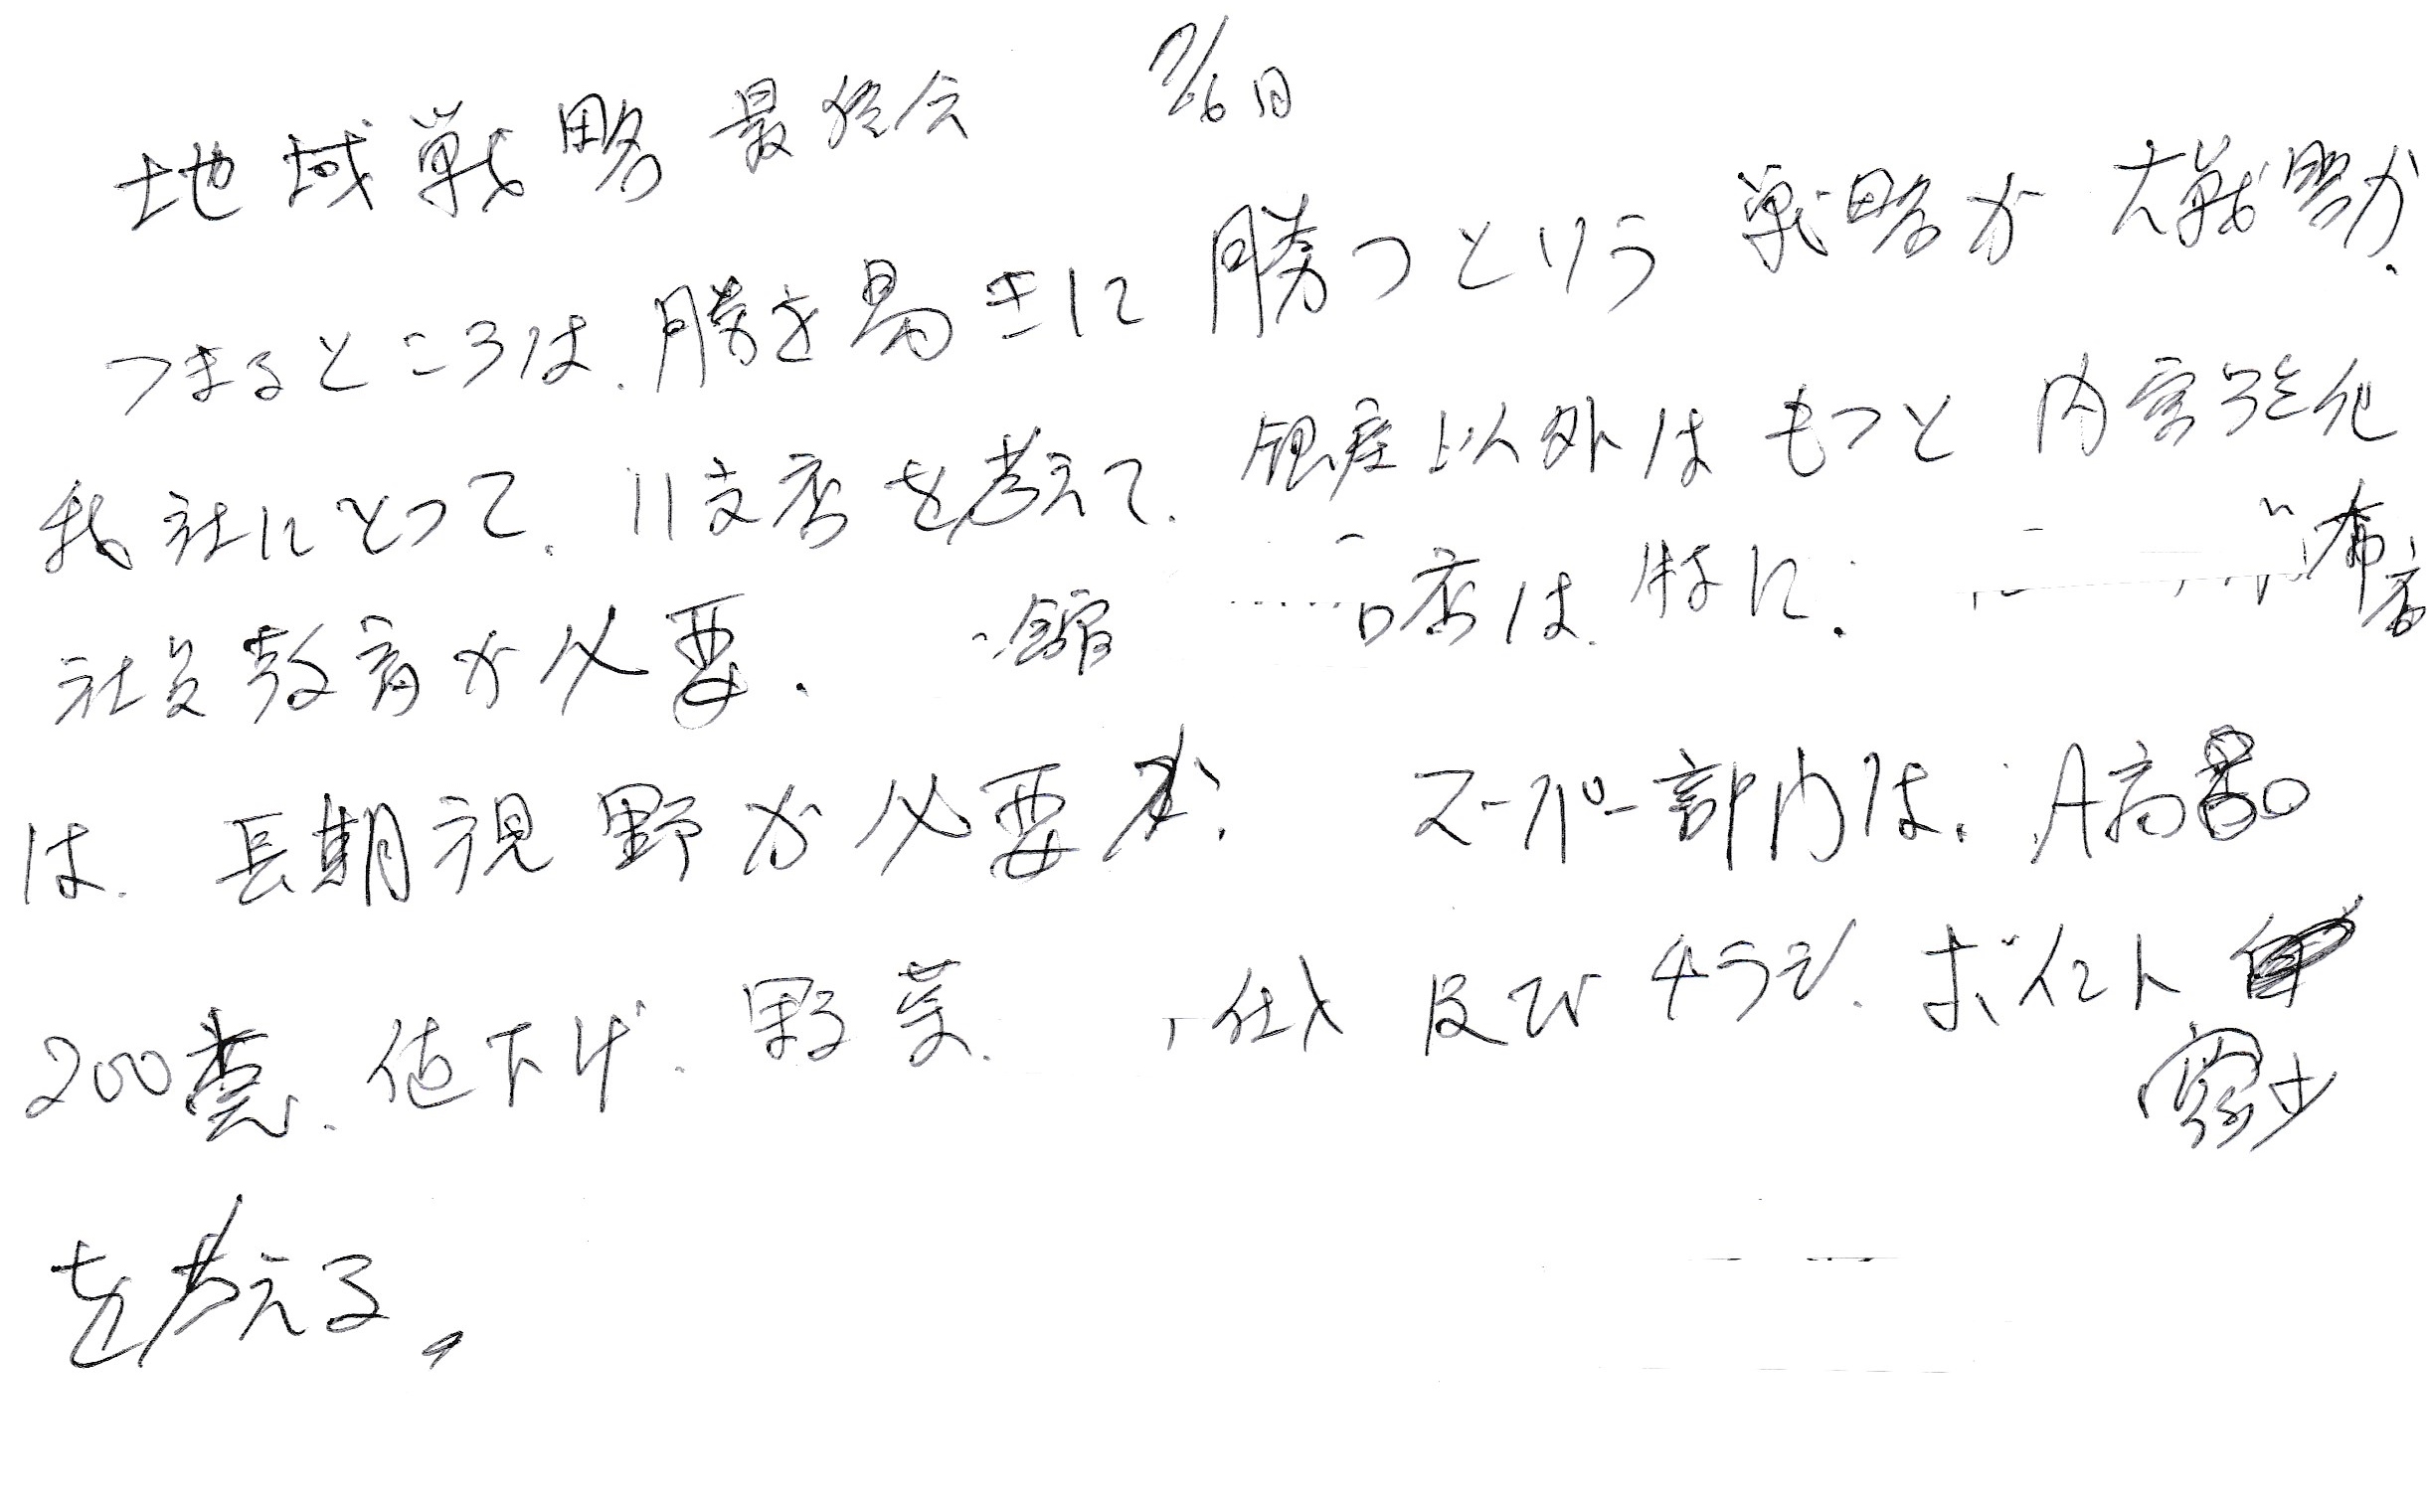 地域戦略 最終会 7/26日
つまるところは、勝ち易きに勝つという 戦略が 大戦略か.
我社にとって、11支店を考えて、銀座以外は もっと 内容強化
社員教育が必要. 館 店は、特に.
は、長期視野が必要か. スーパー部内は、A商品
200 値下げ、野菜. 仕入 及び チラシ、ポイント
を考える。